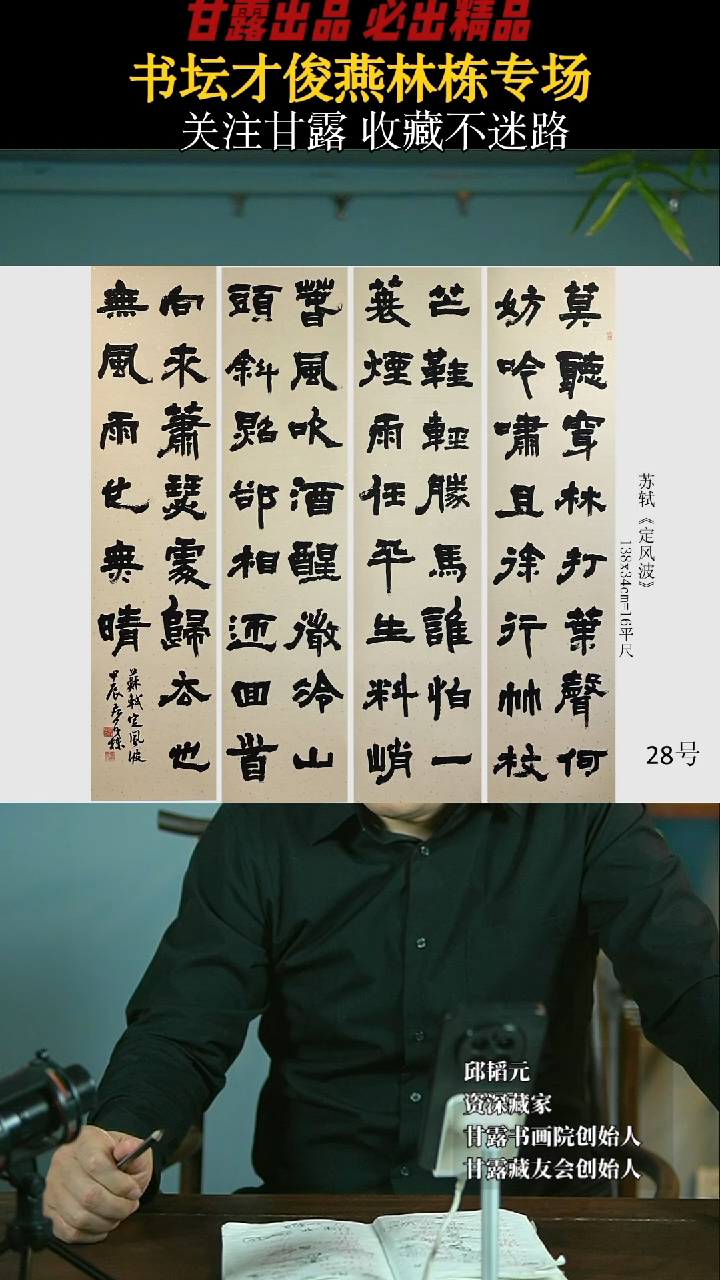 甘露出品 必出精品
书坛才俊燕林栋专场
关注甘露 收藏不迷路
莫聽穿林打葉聲何
妨吟嘯且徐行竹杖
芒鞋輕勝馬誰怕一
蓑煙雨任平生料峭
春風吹酒醒微冷山
頭斜照卻相迎回首
向來蕭瑟處歸去也
無風雨也無晴
蘇軾定風波
甲辰
苏轼《定风波》
138x34cm=16平尺
28号
邱韬元
资深藏家
甘露书画院创始人
甘露藏友会创始人